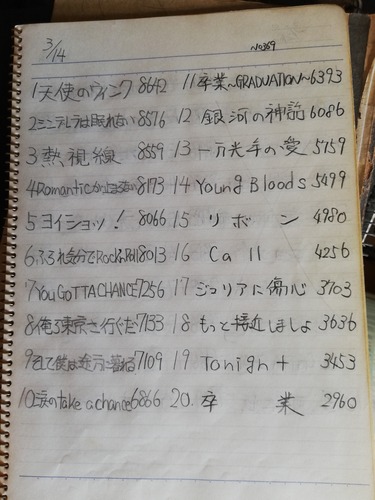 3/14
No369
1 天使のウィンク 8642
2 シンデレラは眠れない 8576
3 熱視線 8559
4 Romanticが止まらない 8173
5 ヨイショッ! 8066
6 ふられ気分でRock'n Roll 8013
7 You GOTTA CHANCE 7256
8 俺ら東京さ行ぐだ 7133
9 そして僕は途方に暮れる 7109
10 涙のtake a chance 6866
11 卒業~GRADUATION~ 6393
12 銀河の神話 6086
13 一万光年の愛 5159
14 Young Bloods 5499
15 リボン 4980
16 Call 4256
17 ジュリアに傷心 3703
18 もっと接近しましょ 3636
19 Tonight 3453
20. 卒業 2960